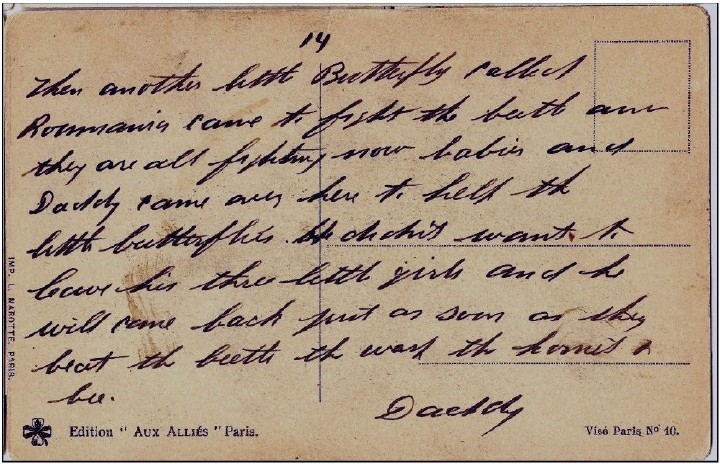 14
Then another little Butterfly called
Roumania came to fight the beetle and
they are all fighting now babies and
Daddy came over here to help the
little butterflies He didn't want to
leave his three little girls and he
will come back just as soon as they
beat the beetle the wasp the hornet &
bee.
Daddy
IMP. L. MAROTTE, PARIS.
Edition " AUX ALLIÉS " Paris.
Visé Paris No 10.